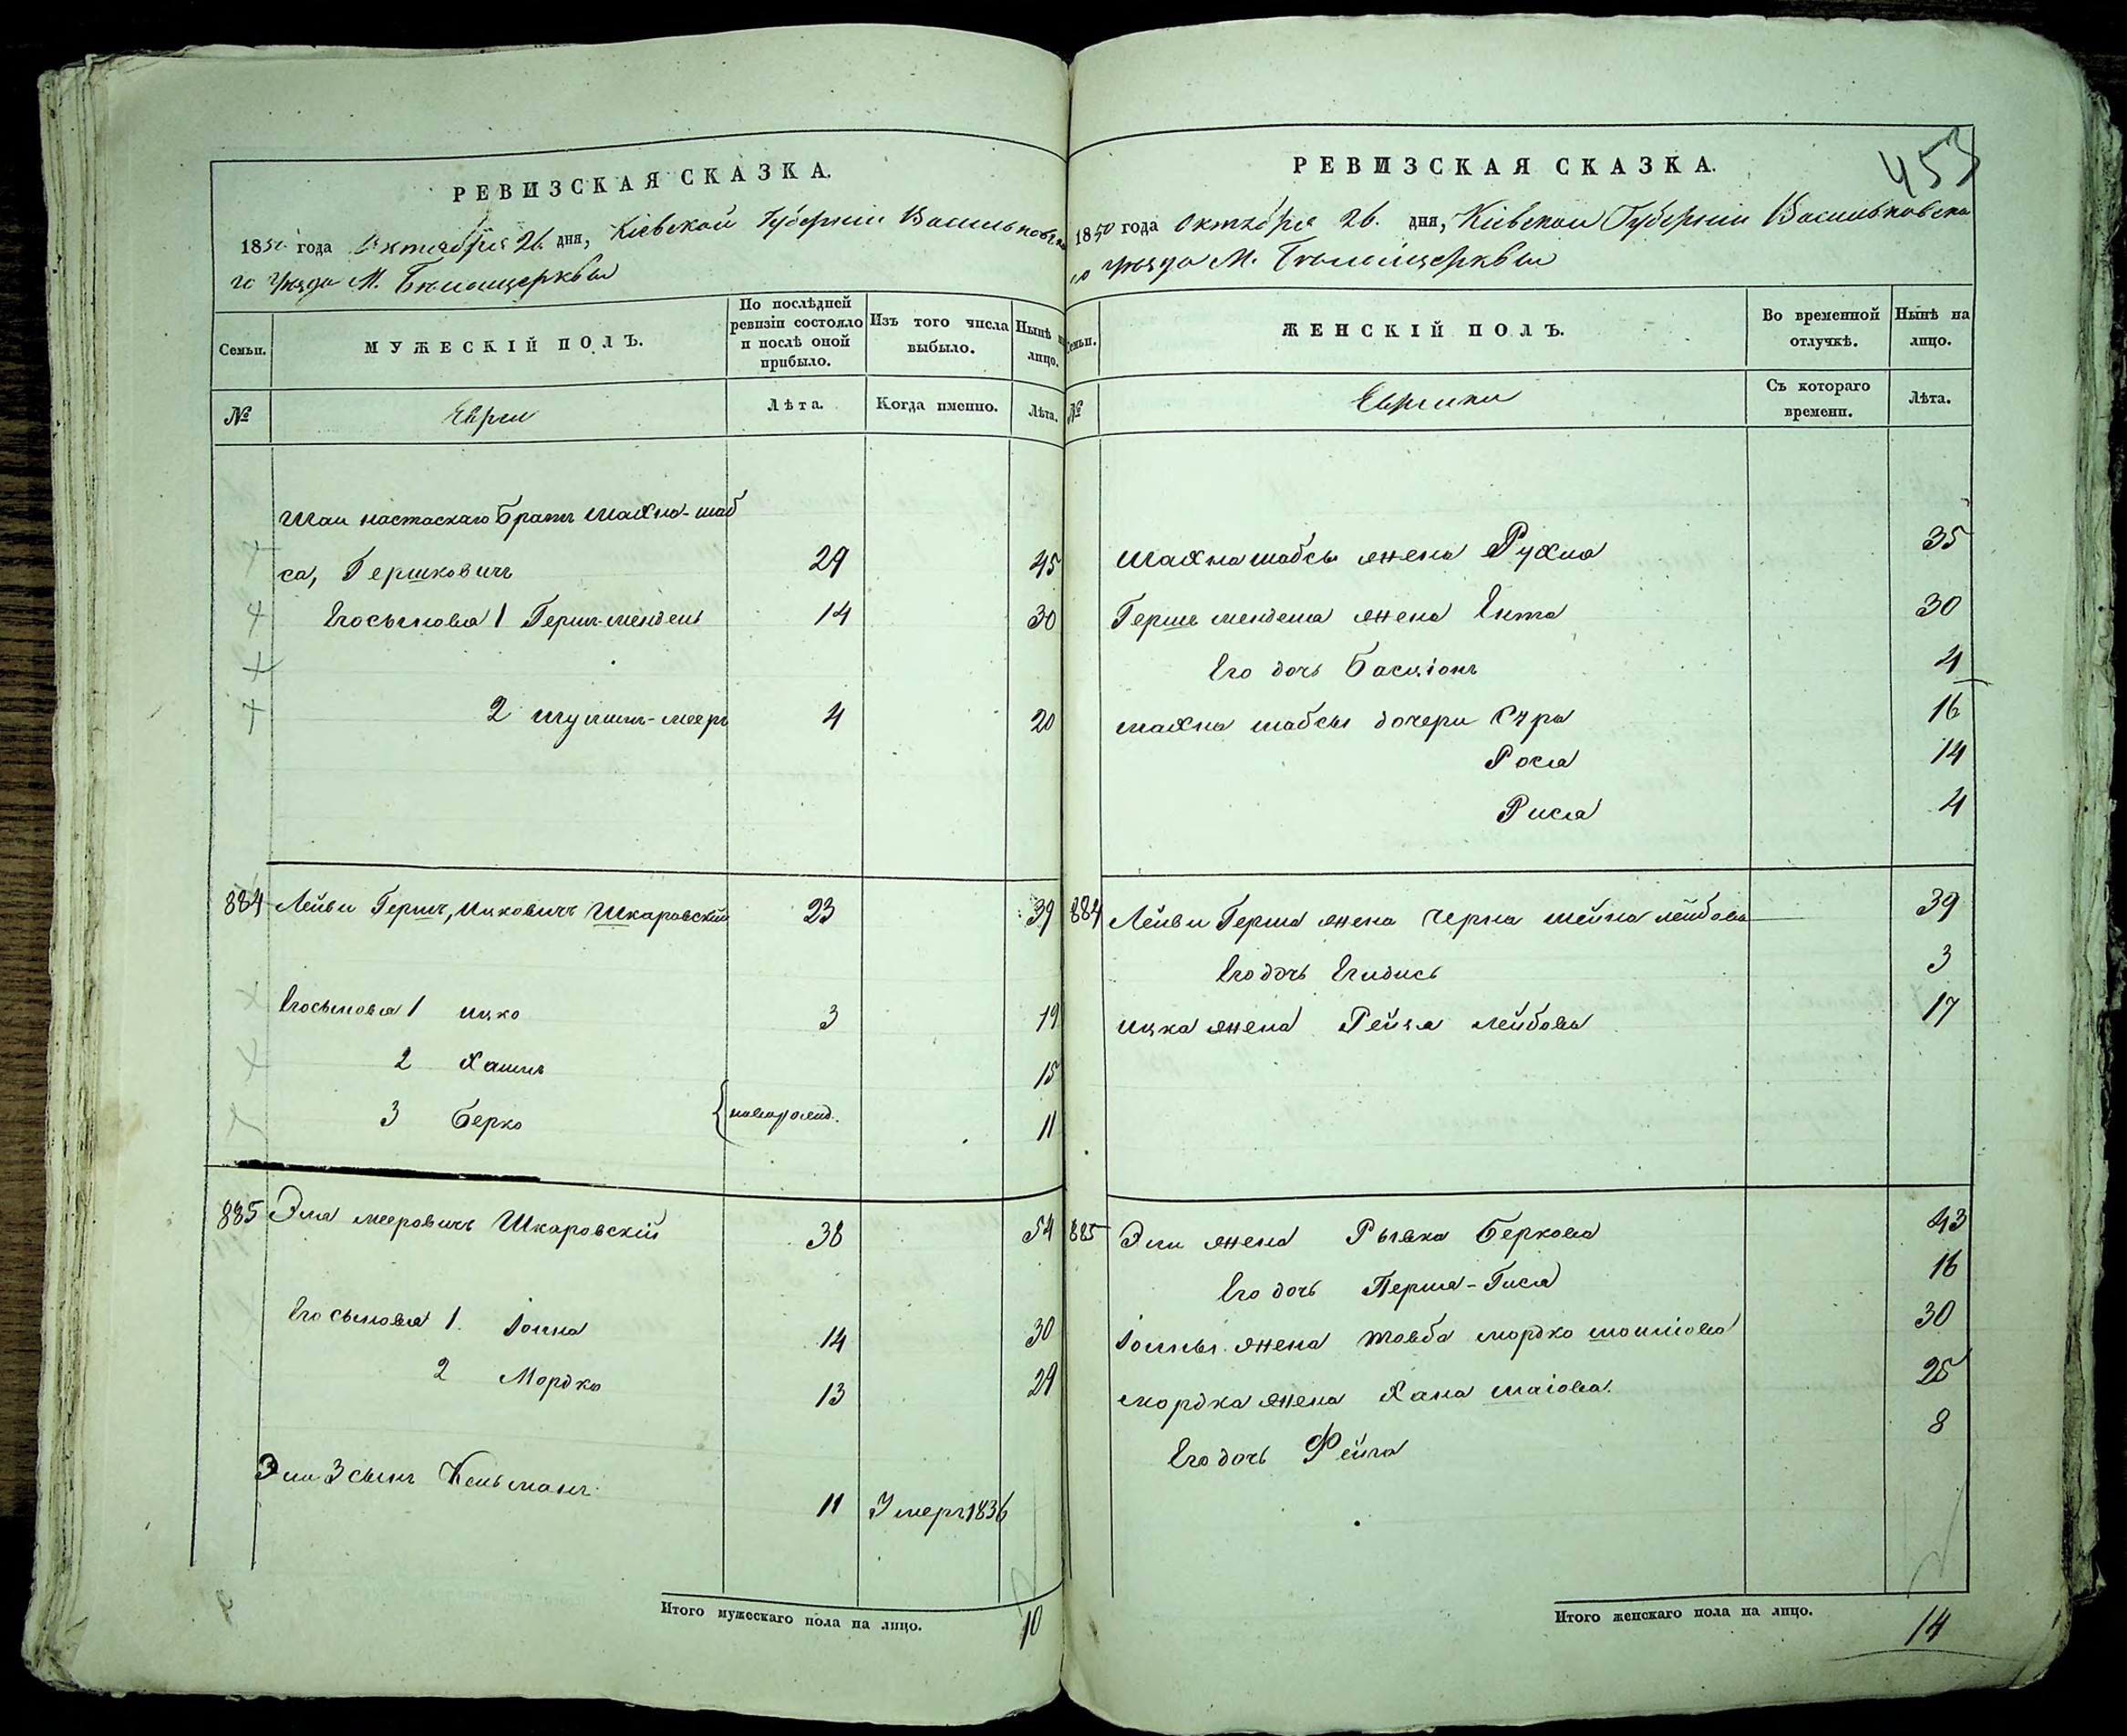 РЕВИЗСКАЯ СКАЗКА.
1850 года Октября 26 дня, Кіевской Губерніи Васильковска
го уѣзда М. Бѣлоицерквы
Семьи.
МУЖЕСКІЙ ПОЛЪ.
По послѣдней ревизіи состояло и послѣ оной прибыло.
Изъ того числа выбыло.
Нынѣ на лицо.
№
Евреи
Лѣта.
Когда именно.
Лѣта.
Шаи братъ Шахна-шаб
са, Гершковичъ 29 45
Его сыновья 1 Гершъ-мендель 14 30
2 мееръ 4 20
884 Лейви Гершъ, Ицковичъ Шкаровскій 23 39
Его сыновья 1 Ицко 3 19
2 Хаимъ 15
3 Берко новорожд. 11
885 Эля мееровичъ Шкаровскій 38 54
Его сыновья 1. Іойна 14 30
2 Мордко 13 29
Эли 3 сынъ Кельманъ 11 Умеръ 1836
Итого мужескаго пола на лицо. 10
РЕВИЗСКАЯ СКАЗКА.
453
1850 года Октября 26. дня, Кіевской Губерніи Васильковска
го уѣзда М. Бѣлоицерквы
Семьи.
ЖЕНСКІЙ ПОЛЪ.
Во временной отлучкѣ.
Нынѣ на лицо.
№
Еврейки
Съ котораго времени.
Лѣта.
Шахна шабсы жена Рухля 35
Гершъ менделя жена Ента 30
Его дочь Басціонъ 4
Шахна шабсы дочери Сура 16
Рося 14
Рися 4
884 Лейви Герша жена Черна шейна лейбова 39
Его дочь 3
Ицка жена Рейзя лейбова 17
885 Эли жена Рывка Беркова 43
Его дочь Перля-Гися 16
Іойны жена Товба мордко 30
Мордка жена Хана шаіова. 25
Его дочь Фейга 8
Итого женскаго пола на лицо. 14